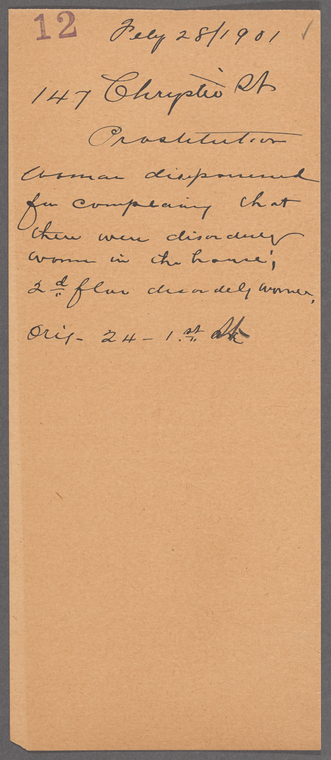 12 Feby 28/1901 ✓
147 Chrystie St
Prostitution
Woman dispossessed
for complaining that
there were disorderly
women in the house;
2d flor disordely women,
Orig - 24 - 1st St